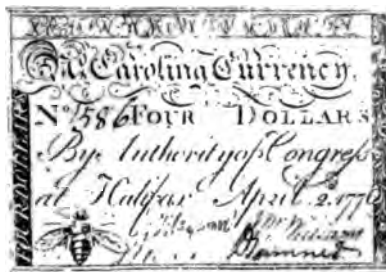 Nº. Carolina Currency.
Nº 1586 FOUR DOLLARS
By Authority of Congress
at Halifax April 2. 1776
FOUR DOLLARS